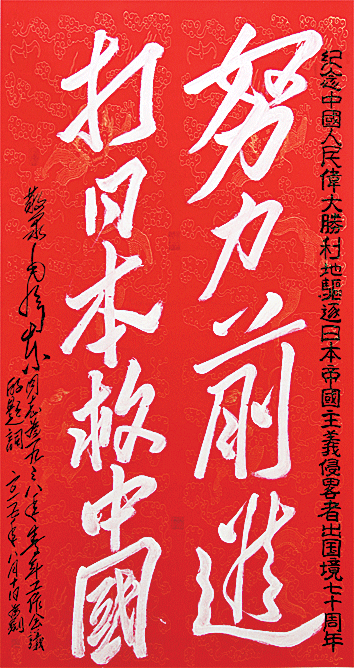 纪念中國人民偉大勝利地驅逐日本帝國主義侵畧者出国境七十周年
努力前進
打日本救中國
敬录 同志 一九三八年 工作会議
題詞 年八月